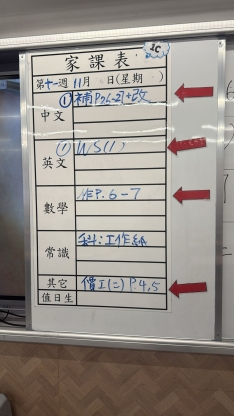 家課表
2C
第十一週 11月 日(星期 )
中文 ① 補P.26-27+改
英文 ① WS(1)
數學 作P.6-7
常識 科:工作紙
其它 價工(二) P.4,5
值日生